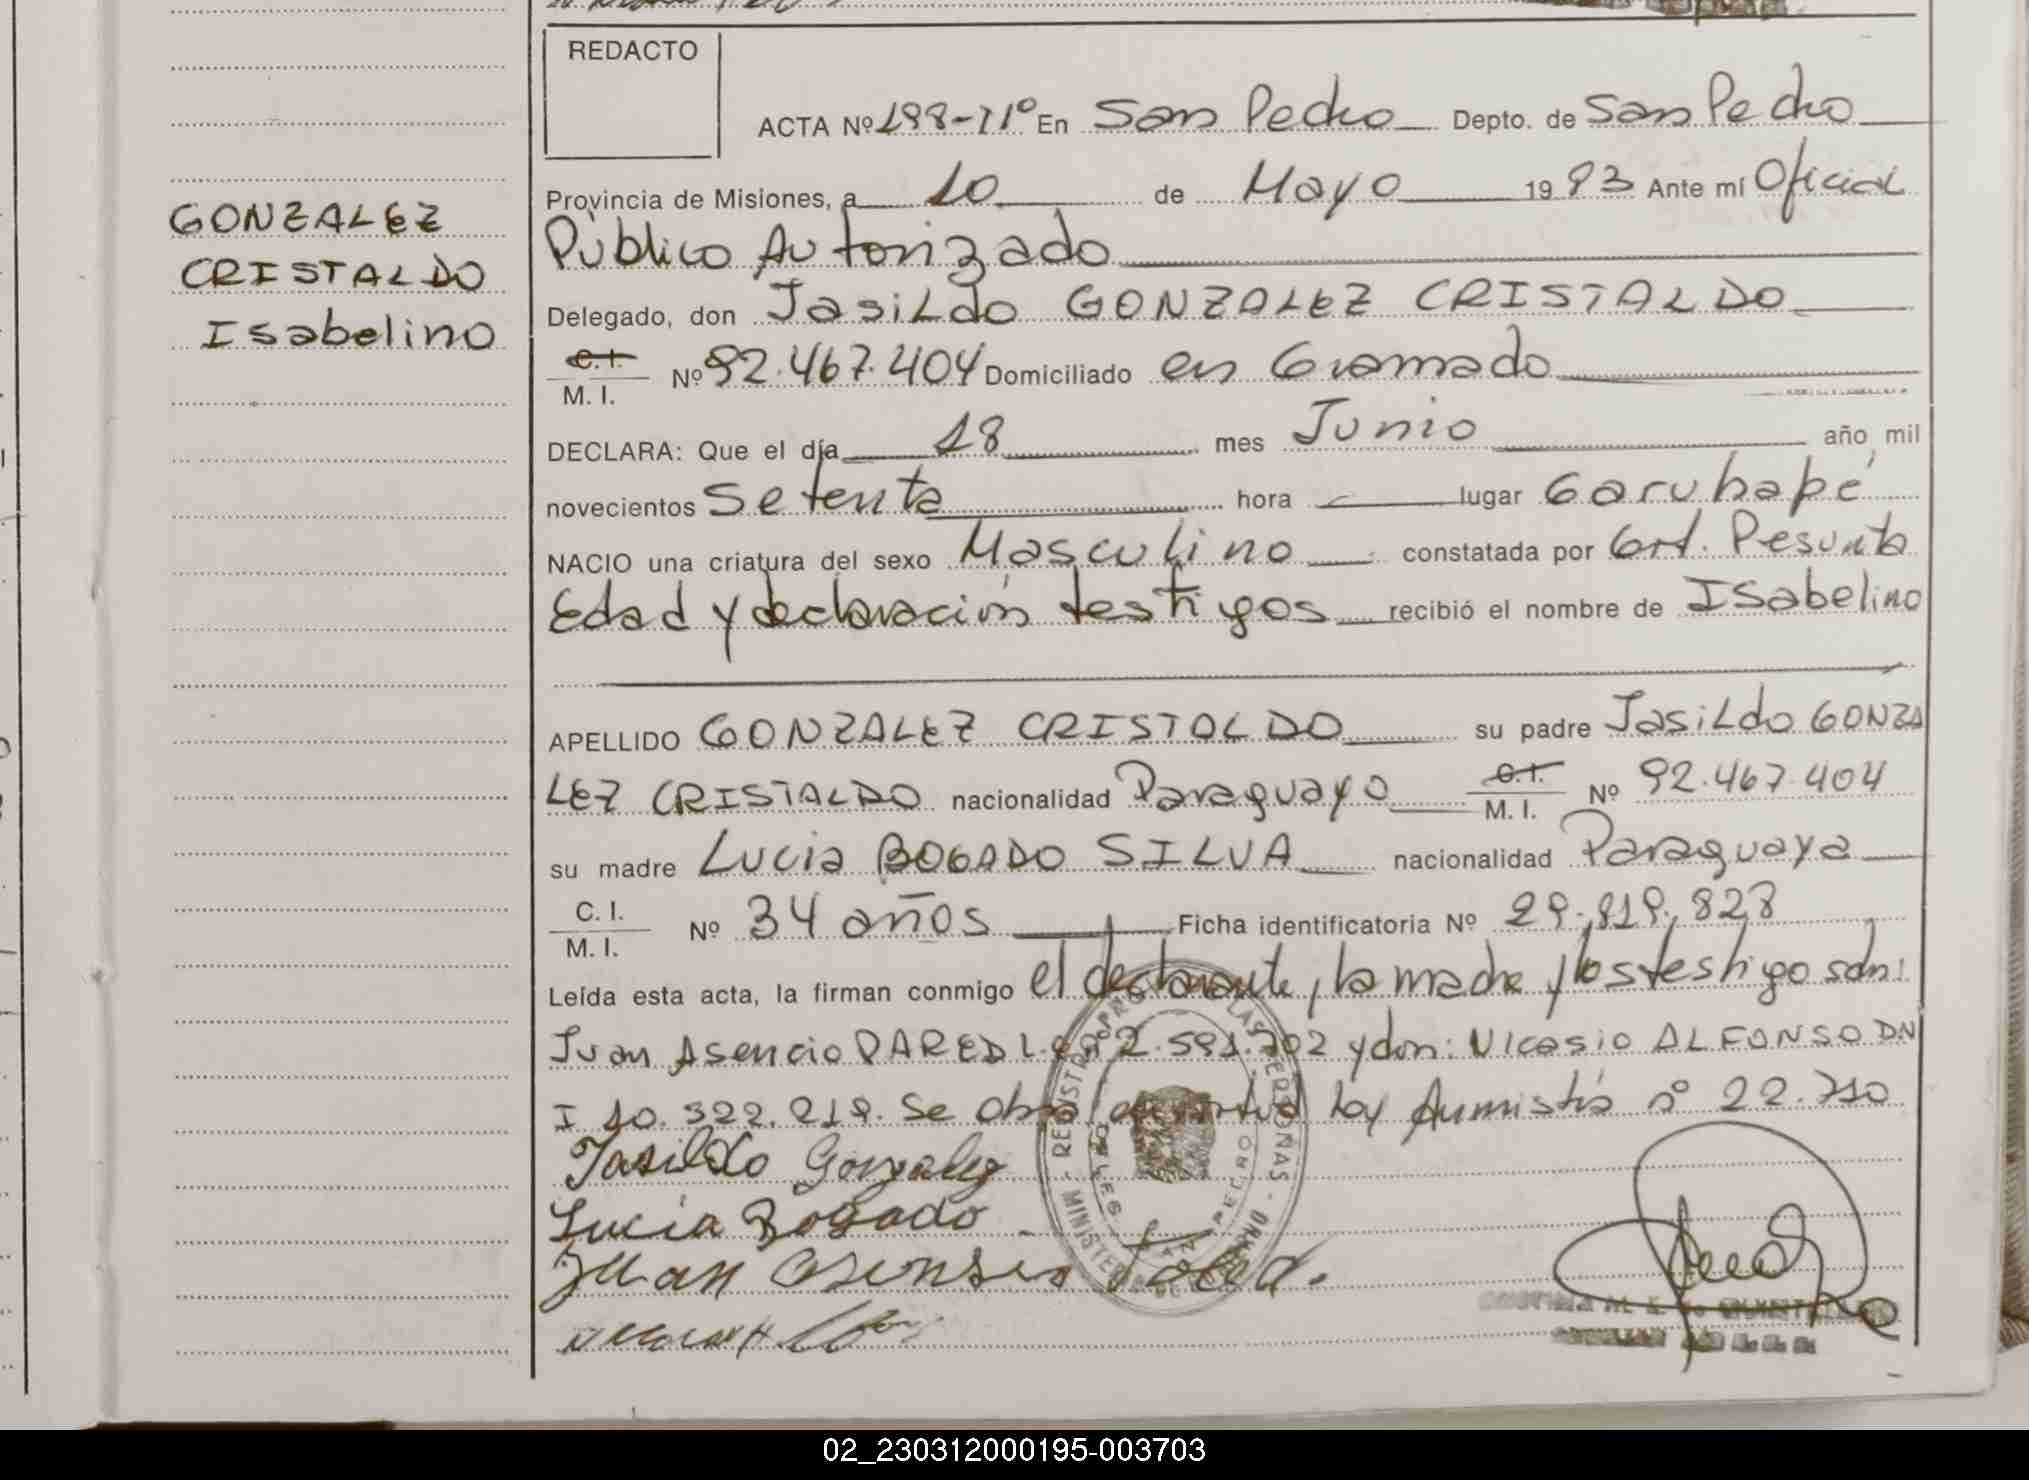 REDACTO
ACTA Nº 198-71º En San Pedro Depto. de San Pedro
Provincia de Misiones, a 10 de Mayo 19 93 Ante mí Oficial
Público Autorizado
GONZALEZ
CRISTALDO
Isabelino
Delegado, don Jasildo GONZALEZ CRISTALDO
C.I.
M. I. Nº 92.467.404 Domiciliado en Gramado
DECLARA: Que el día 18 mes Junio año mil
novecientos Setenta hora lugar Garuhapé
NACIO una criatura del sexo Masculino constatada por Crt. Pesunta
Edad y declaración testigos recibió el nombre de ISabelino
APELLIDO GONZALEZ CRISTOLDO su padre Jasildo GONZA
LEZ CRISTALDO nacionalidad Paraguayo C.I. M. I. Nº 92.467.404
su madre Lucia BOGADO SILVA nacionalidad Paraguaya
C. I.
M. I. Nº 34 años Ficha identificatoria Nº 29.819.828
Leída esta acta, la firman conmigo el declarante, la madre y los testigo son:
Juan Asencio PARED L.E. nº 2.591.702 y don: NIcasio ALFONSO DN
I 10.322.219. Se obra ley Aumistía nº 22.710
Jasildo Gonzalez
Lucia Bogado
Juan Asensio
02_230312000195-003703